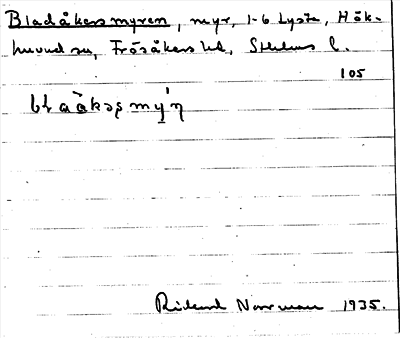 Bladåkersmyren, myr, 1-6 Lysta, Hök-
huvud sn, Frösåkers hd, Sthlms l.
105
Rickard Norrman 1935.